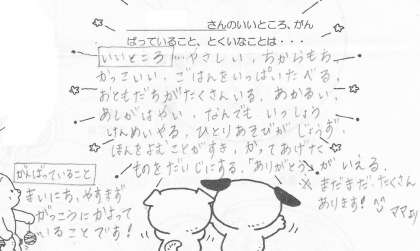 さんのいいところ、がん
ばっていること、とくいなことは・・・
いいところ…やさしい、ちからもち、
かっこいい、ごはんをいっぱいたべる、
おともだちがたくさんいる、あかるい、
あしがはやい、なんでも いっしょう
けんめいやる、ひとりあそびが じょうず、
ほんをよむことがすき、かってあげた
ものをだいじにする、「ありがとう」が いえる。
※ まだまだ、たくさん
あります! ^^
ママより
がんばっていること
まいにち、やすまず
がっこうにかよって
いることです!